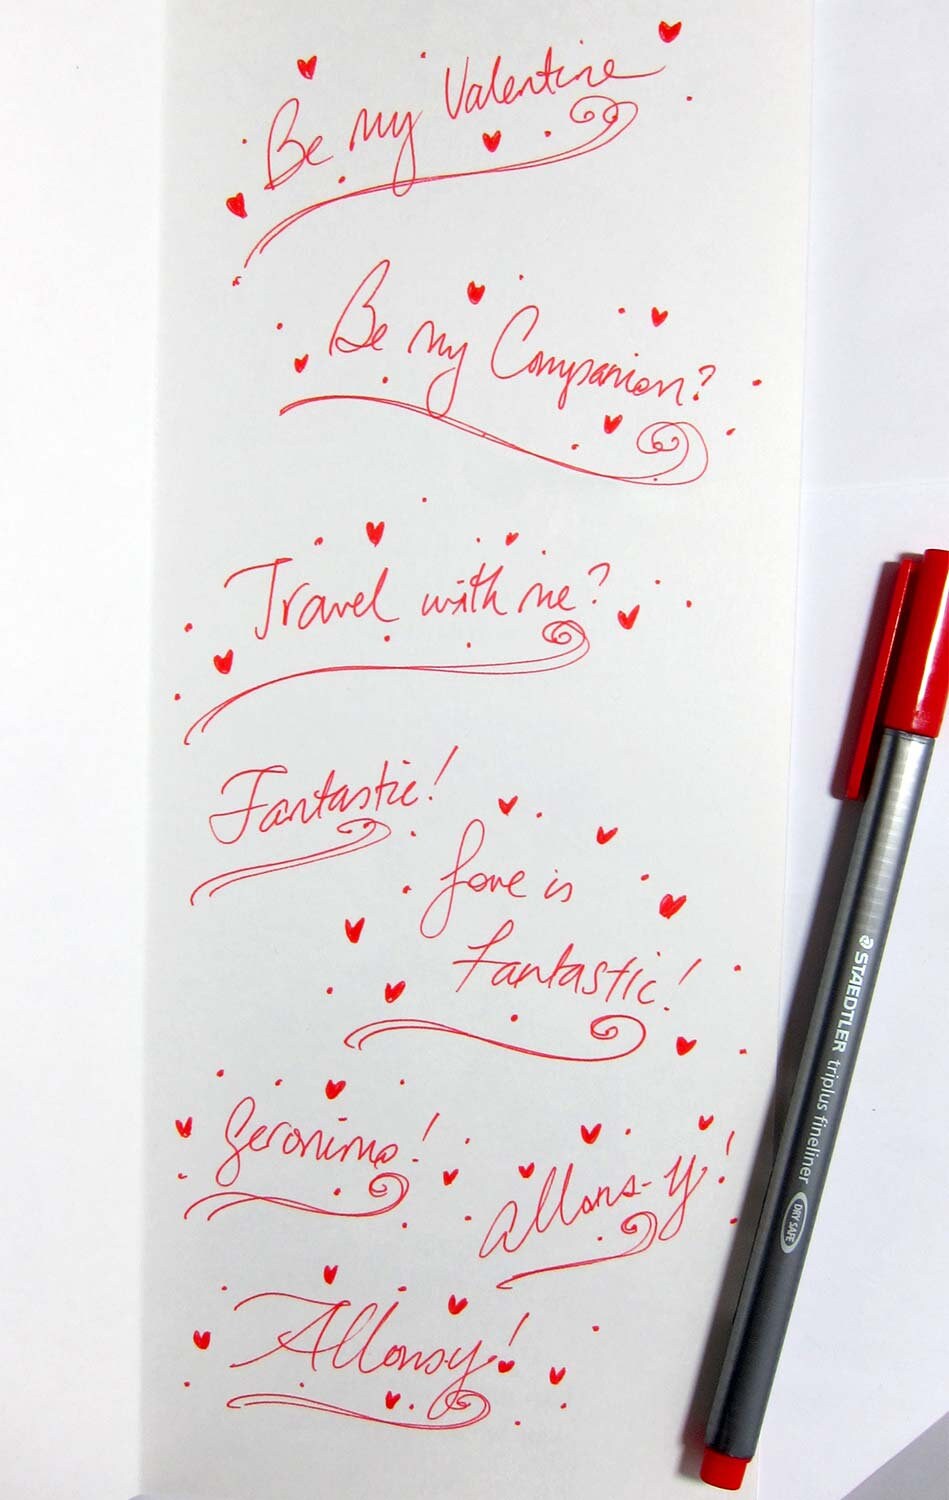 Be my Valentine
Be my Companion?
Travel with me?
Fantastic!
Love is
fantastic!
Geronimo!
allons-y!
Allonsy!
STAEDTLER triplus fineliner DRY SAFE